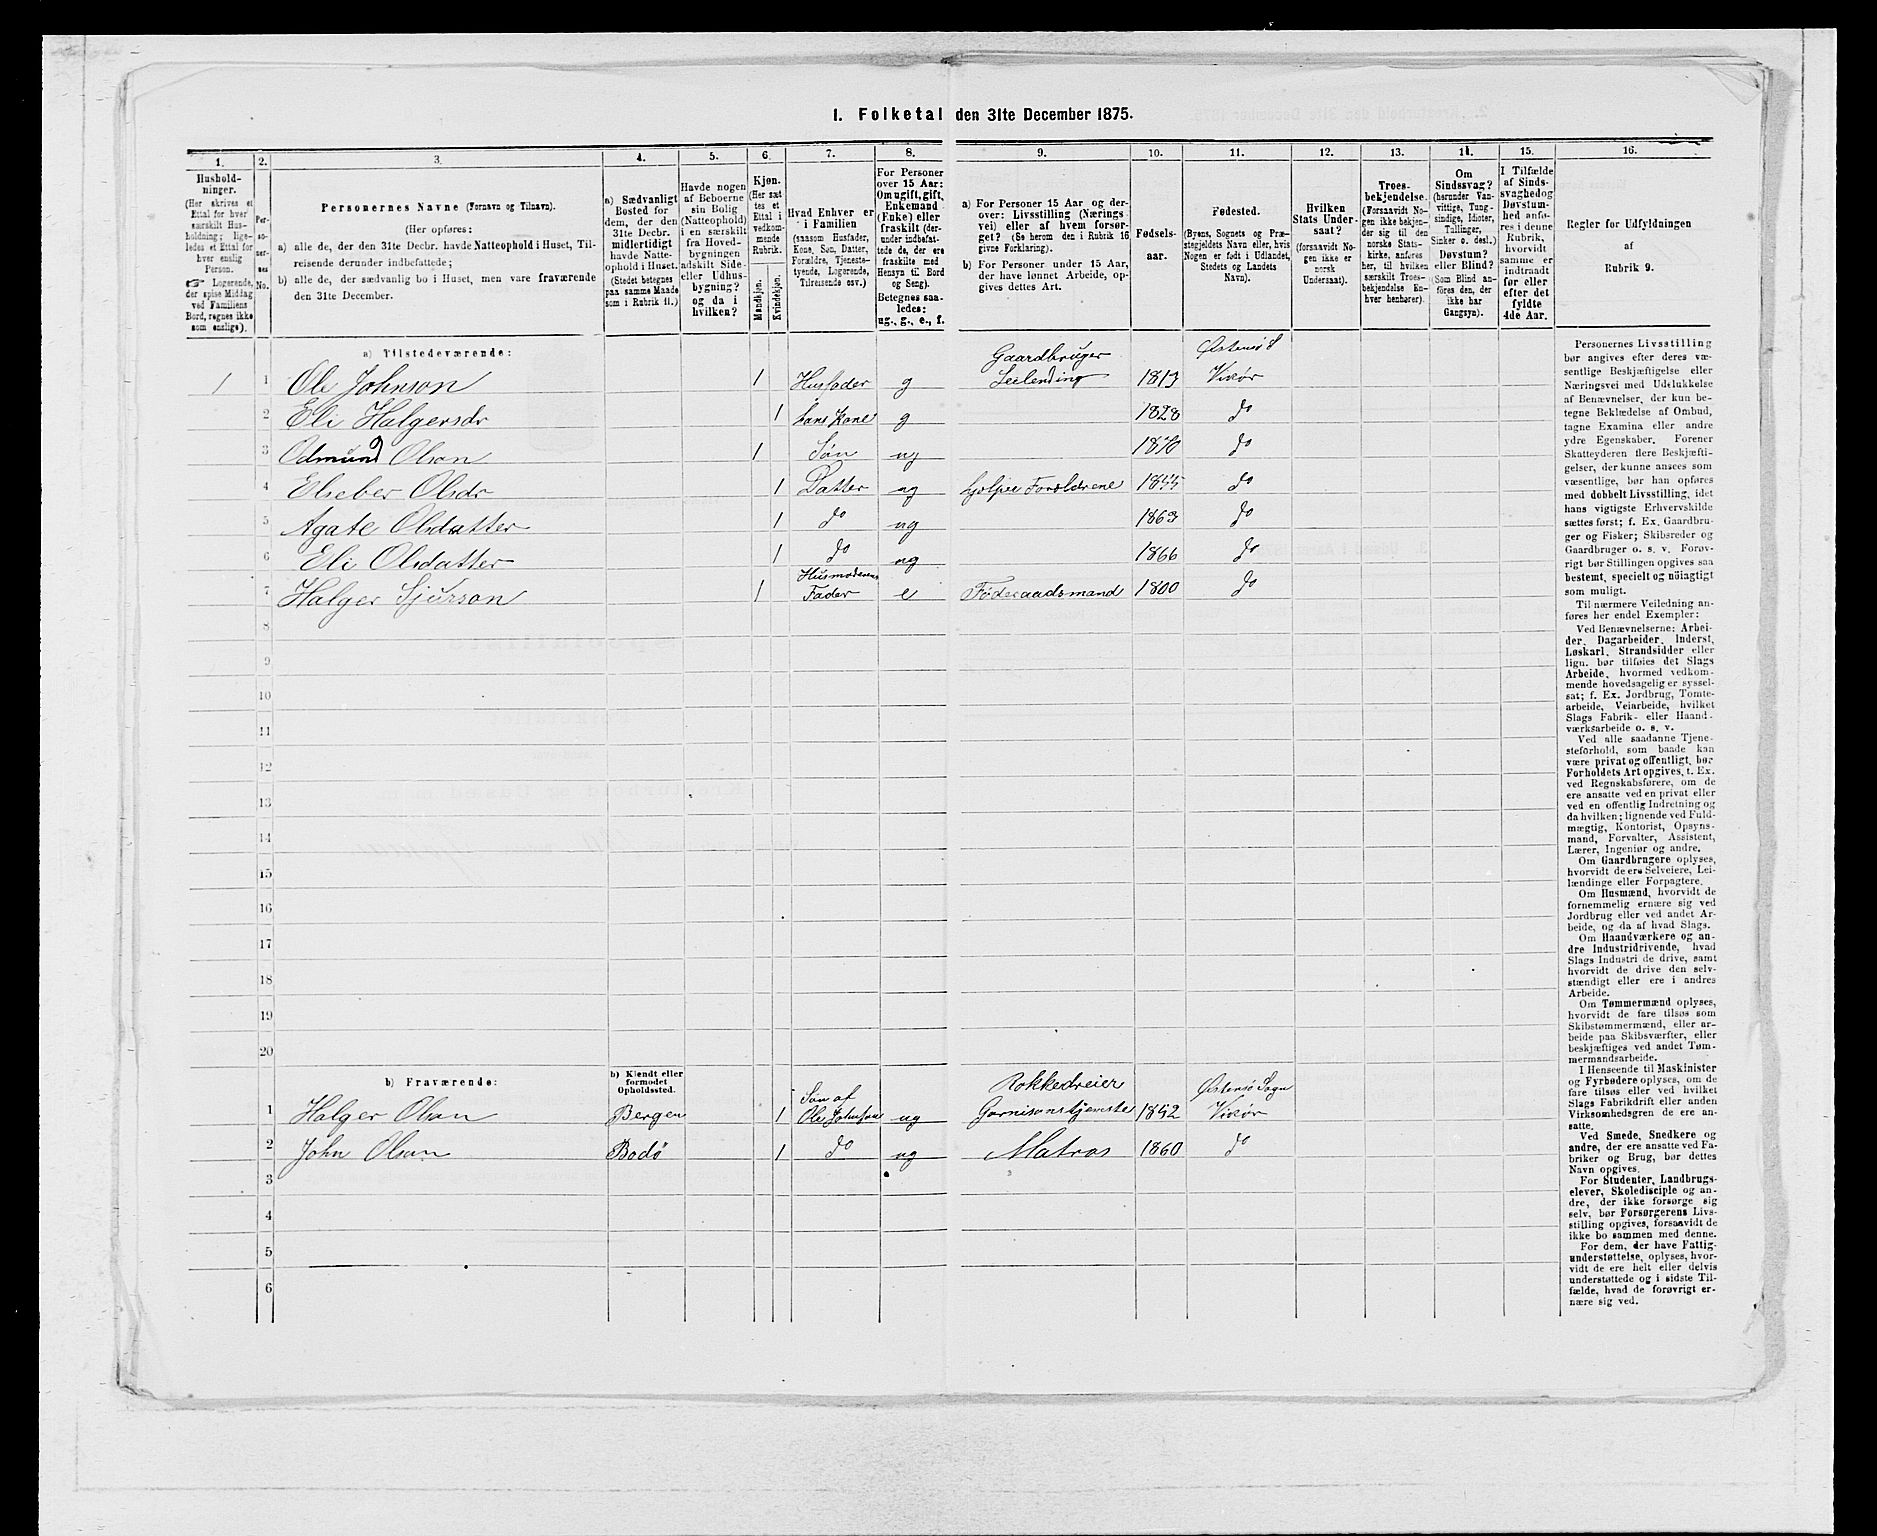 1. Folketal den 31te December 1875.
1. 2. 3. 4. 5. 6. 7. 8. 9. 10. 11. 12. 13. 14. 15. 16.
Hushold-
ninger.
(Her skrives et
Ettal for hver
særskilt Hus-
holdning; lige-
ledes et Ettal for
hver enslig
Person.
☞ Logerende,
der spise Middag
ved Familiens
Bord, regnes ikke
som enslige).
Per-
so-
ner-
nes
No.
Personernes Navne (Fornavn og Tilnavn).
(Her opføres:
a) alle de, der den 31te Decbr. havde Natteophold i Huset, Til-
reisende derunder indbefattede;
b) alle de, der sædvanlig bo i Huset, men vare fraværende
den 31te December.
a) Sædvanligt
Bosted for
dem, der den
31te Decbr.
midlertidigt
havde Natte-
ophold i Huset.
(Stedet betegnes
paa samme Maade
som i Rubrik 11.)
Havde nogen
af Beboerne
sin Bolig
(Natteophold)
i en særskilt
fra Hoved-
bygningen
adskilt Side-
eller Udhus-
bygning?
og da i
hvilken?
Kjøn.
(Her sæt-
tes et
Ettal i
vedkom-
mende
Rubrik.
Mandkjøn.
Kvindekjøn.
Hvad Enhver er
i Familien
(saasom Husfader,
Kone, Søn, Datter,
Forældre, Tjeneste-
tyende, Logerende,
Tilreisende osv.)
For Personer
over 15 Aar:
Om ugift, gift,
Enkemand
(Enke) eller
fraskilt (der-
under indbefat-
tede de, der ere
fraskilte med
Hensyn til Bord
og Seng).
Betegnes saa-
ledes:
ug., g., e., f.
a) For Personer 15 Aar og der-
over: Livsstilling (Nærings-
vei) eller af hvem forsør-
get? (Se herom den i Rubrik 16
givne Forklaring).
b) For Personer under 15 Aar,
der have lønnet Arbeide, op-
gives dettes Art.
Fødsels-
aar.
Fødested.
(Byens, Sognets og Præ-
stegjeldets Navn eller, hvis
Nogen er født i Udlandet,
Stedets og Landets
Navn).
Hvilken
Stats Under-
saat?
(forsaavidt No-
gen ikke er
norsk
Undersaat).
Troes-
bekjendelse.
(Forsaavidt No-
gen ikke bekjen-
der sig til den
norske Stats-
kirke, anføres
her, til hvilken
særskilt Troes-
bekjendelse En-
hver henhører).
Om
Sindssvag?
(herunder Van-
vittige, Tung-
sindige, Idioter,
Tullinger,
Sinker o. desl.)
Døvstum?
eller Blind?
(Som Blind an-
føres den, der
ikke har
Gangsyn).
I Tilfælde
af Sinds-
svaghed og
Døvstum-
hed anfø-
res i denne
Rubrik,
hvorvidt
samme er
indtraadt
før eller
efter det
fyldte
4de Aar.
Regler for Udfyldningen
af
Rubrik 9.
a) Tilstedeværende:
1 1 Ole Johnson 1 Husfader g Gaardbruger Leilending 1813 Østensø S Vikør
2 Eli Halgersdr 1 hans Kone g 1828 do
3 Odmund Olson 1 Søn ug 1870 do
4 Elseber Olsdr 1 Datter ug hjelper Forældrene 1855 do
5 Agate Olsdatter 1 do ug 1863 do
6 Eli Olsdatter 1 do ug 1866 do
7 Halger Sjurson 1 Husmoderens Fader e Føderaadsmand 1800 do
8
9
10
11
12
13
14
15
16
17
18
19
20
b) Fraværende:
b) Kjendt eller
formodet
Opholdssted.
1 Halger Olson Bergen 1 Søn af Ole Johnson ug Rokkedreier Garnisonstjeneste 1852 Østensø Sogn Vikør
2 John Olson Bodø 1 do ug Matros 1860 do
3
4
5
6
Personernes Livsstilling
bør angives efter deres væ-
sentlige Beskjæftigelse eller
Næringsvei med Udelukkelse
af Benævnelser, der kun be-
tegne Beklædelse af Ombud,
tagne Examina eller andre
ydre Egenskaber. Forener
Skatteyderen flere Beskjæfti-
gelser, der kunne ansees som
væsentlige, bør han opføres
med dobbelt Livsstilling, idet
hans vigtigste Erhvervskilde
sættes først; f. Ex. Gaardbru-
ger og Fisker; Skibsreder og
Gaardbruger o. s. v. Forøv-
rigt bør Stillingen opgives saa
bestemt, specielt og nöiagtigt
som muligt.
Til nærmere Veiledning an-
føres her endel Exempler:
Ved Benævnelserne: Arbei-
der, Dagarbeider, Inderst,
Løskarl, Strandsidder eller
lign. bør tilføies det Slags
Arbeide, hvormed vedkom-
mende hovedsagelig er syssel-
sat; f. Ex. Jordbrug, Tomte-
arbeide, Veiarbeide, hvilket
Slags Fabrik- eller Haand-
værksarbeide o. s. v.
Ved alle saadanne Tjene-
steforhold, som baade kan
være privat og offentligt, bør
Forholdets Art opgives, t. Ex.
ved Regnskabsførere, om de
ere ansatte ved en privat eller
ved en offentlig Indretning og
da hvilken; lignende ved Fuld-
mægtig, Kontorist, Opsyns-
mand, Forvalter, Assistent,
Lærer, Ingeniør og andre.
Om Gaardbrugere oplyses,
hvorvidt de ere Selveiere, Lei-
lændinge eller Forpagtere.
Om Husmænd, hvorvidt de
fornemmelig ernære sig ved
Jordbrug eller ved andet Ar-
beide, og da af hvad Slags.
Om Haandværkere og an-
dre Industridrivende, hvad
Slags Industri de drive, samt
hvorvidt de drive den selv-
stændigt eller ere i andres
Arbeide.
Om Tømmermænd oplyses,
hvorvidt de fare tilsøs som
Skibstømmermænd, eller ar-
beide paa Skibsværfter, eller
beskjæftiges ved andet Tøm-
mermandsarbeide.
I Henseende til Maskinister
og Fyrbødere oplyses, om de
fare tilsøs eller ved hvilket
Slags Fabrikdrift eller anden
Virksomhedsgren de ere an-
satte.
Ved Smede, Snedkere og
andre, der ere ansatte ved Fa-
briker og Brug, bør dettes
Navn opgives.
For Studenter, Landbrugs-
elever, Skoledisciple og an-
dre, der ikke forsørge sig
selv, bør Forsørgerens Livs-
stilling opgives, forsaavidt de
ikke bo sammen med denne.
For dem, der have Fattig-
understøttelse, oplyses, hvor-
vidt de ere helt eller delvis
understøttede og i sidste Til-
fælde, hvad de forøvrigt er-
nære sig ved.